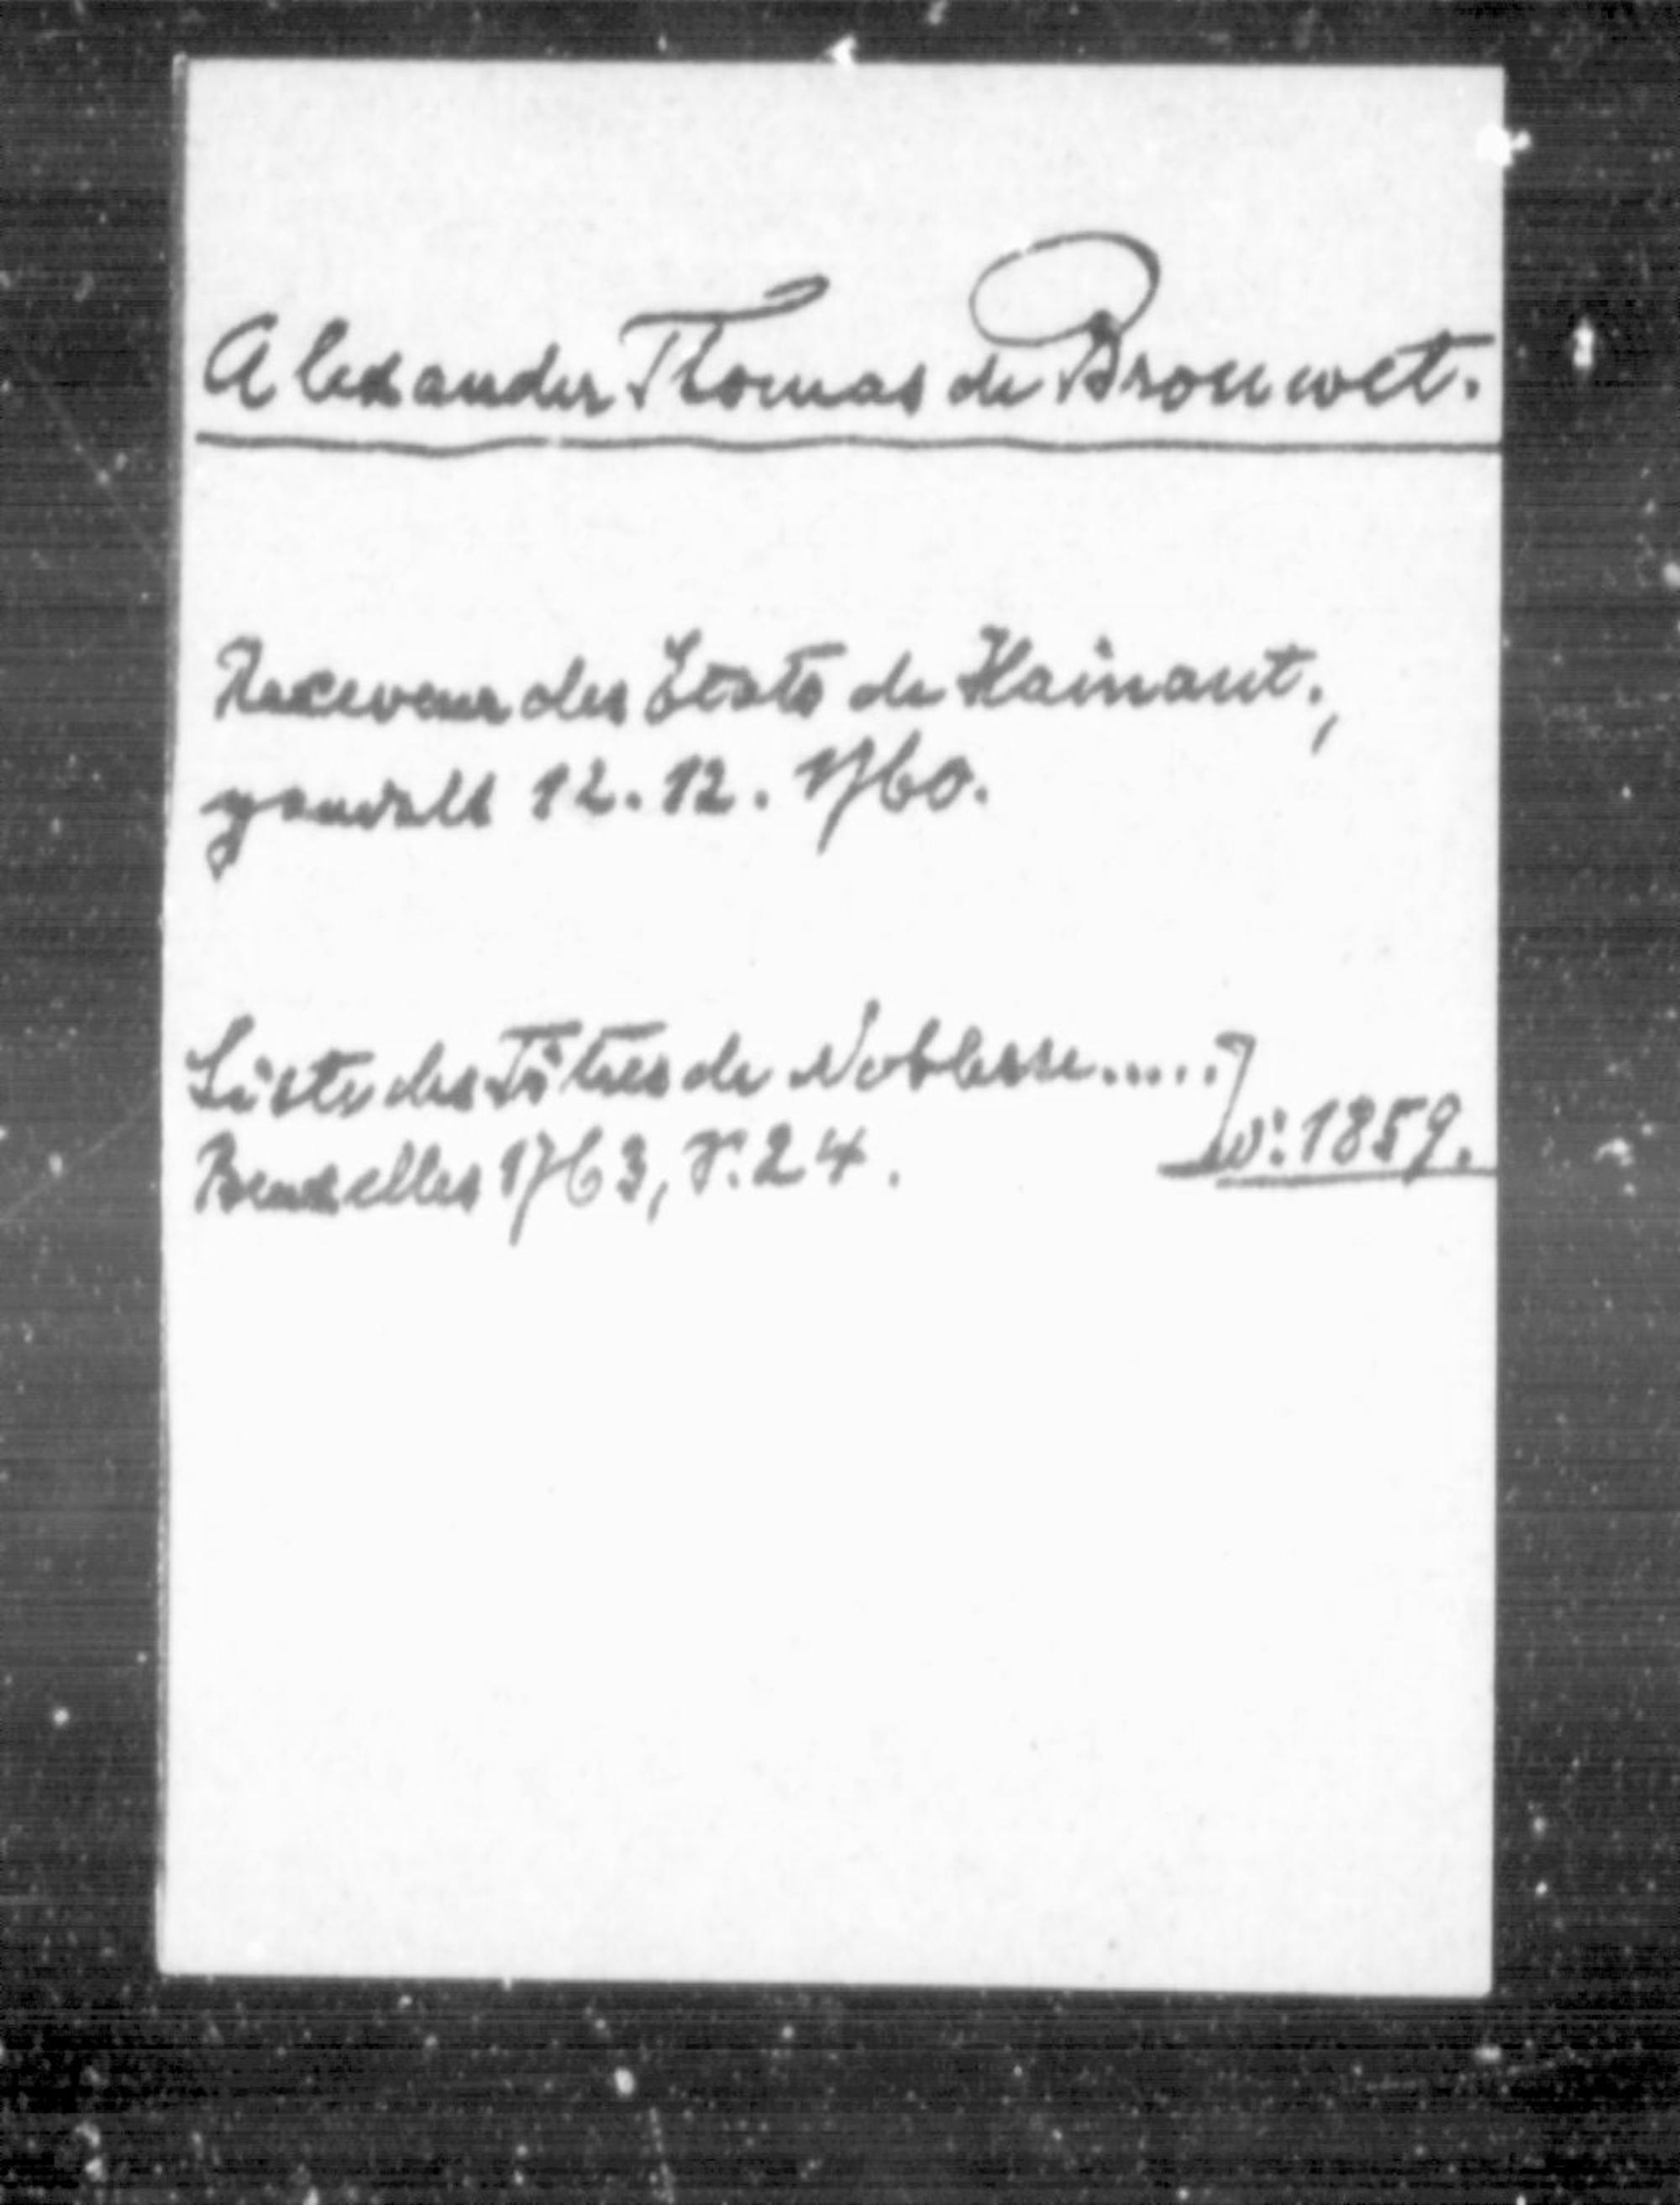 Alexander Thomas de Brouwet.
Receveur des Etats de Hainaut,
geadelt 12.12.1760.
Liste des Titres de Noblesse.....
Bruxelles 1763, S. 24.
W: 1859.